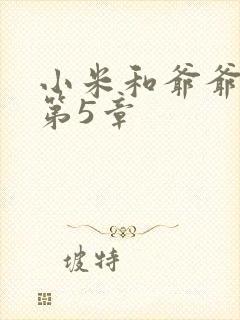 小米和爷爷
第5章
坡特